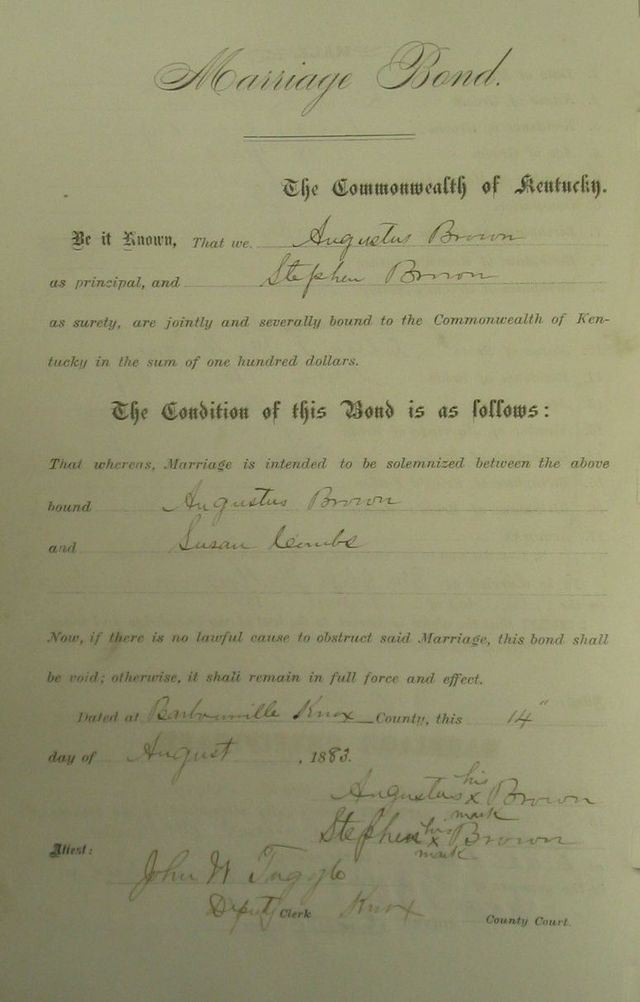 Marriage Bond.
The Commonwealth of Kentucky.
Be it Known, That we Augustus Brown
as principal, and Stephen Brown
as surety, are jointly and severally bound to the Commonwealth of Ken-
tucky in the sum of one hundred dollars.
The Condition of this Bond is as follows:
That whereas, Marriage is intended to be solemnized between the above
bound Augustus Brown
and Susan Combs
Now, if there is no lawful cause to obstruct said Marriage, this bond shall
be void; otherwise, it shall remain in full force and effect.
Dated at Barbourville Knox County, this 14"
day of August, 1883.
Augustus his x mark Brown
Stephen his x mark Brown
Attest:
John W
Deputy Clerk Knox County Court.